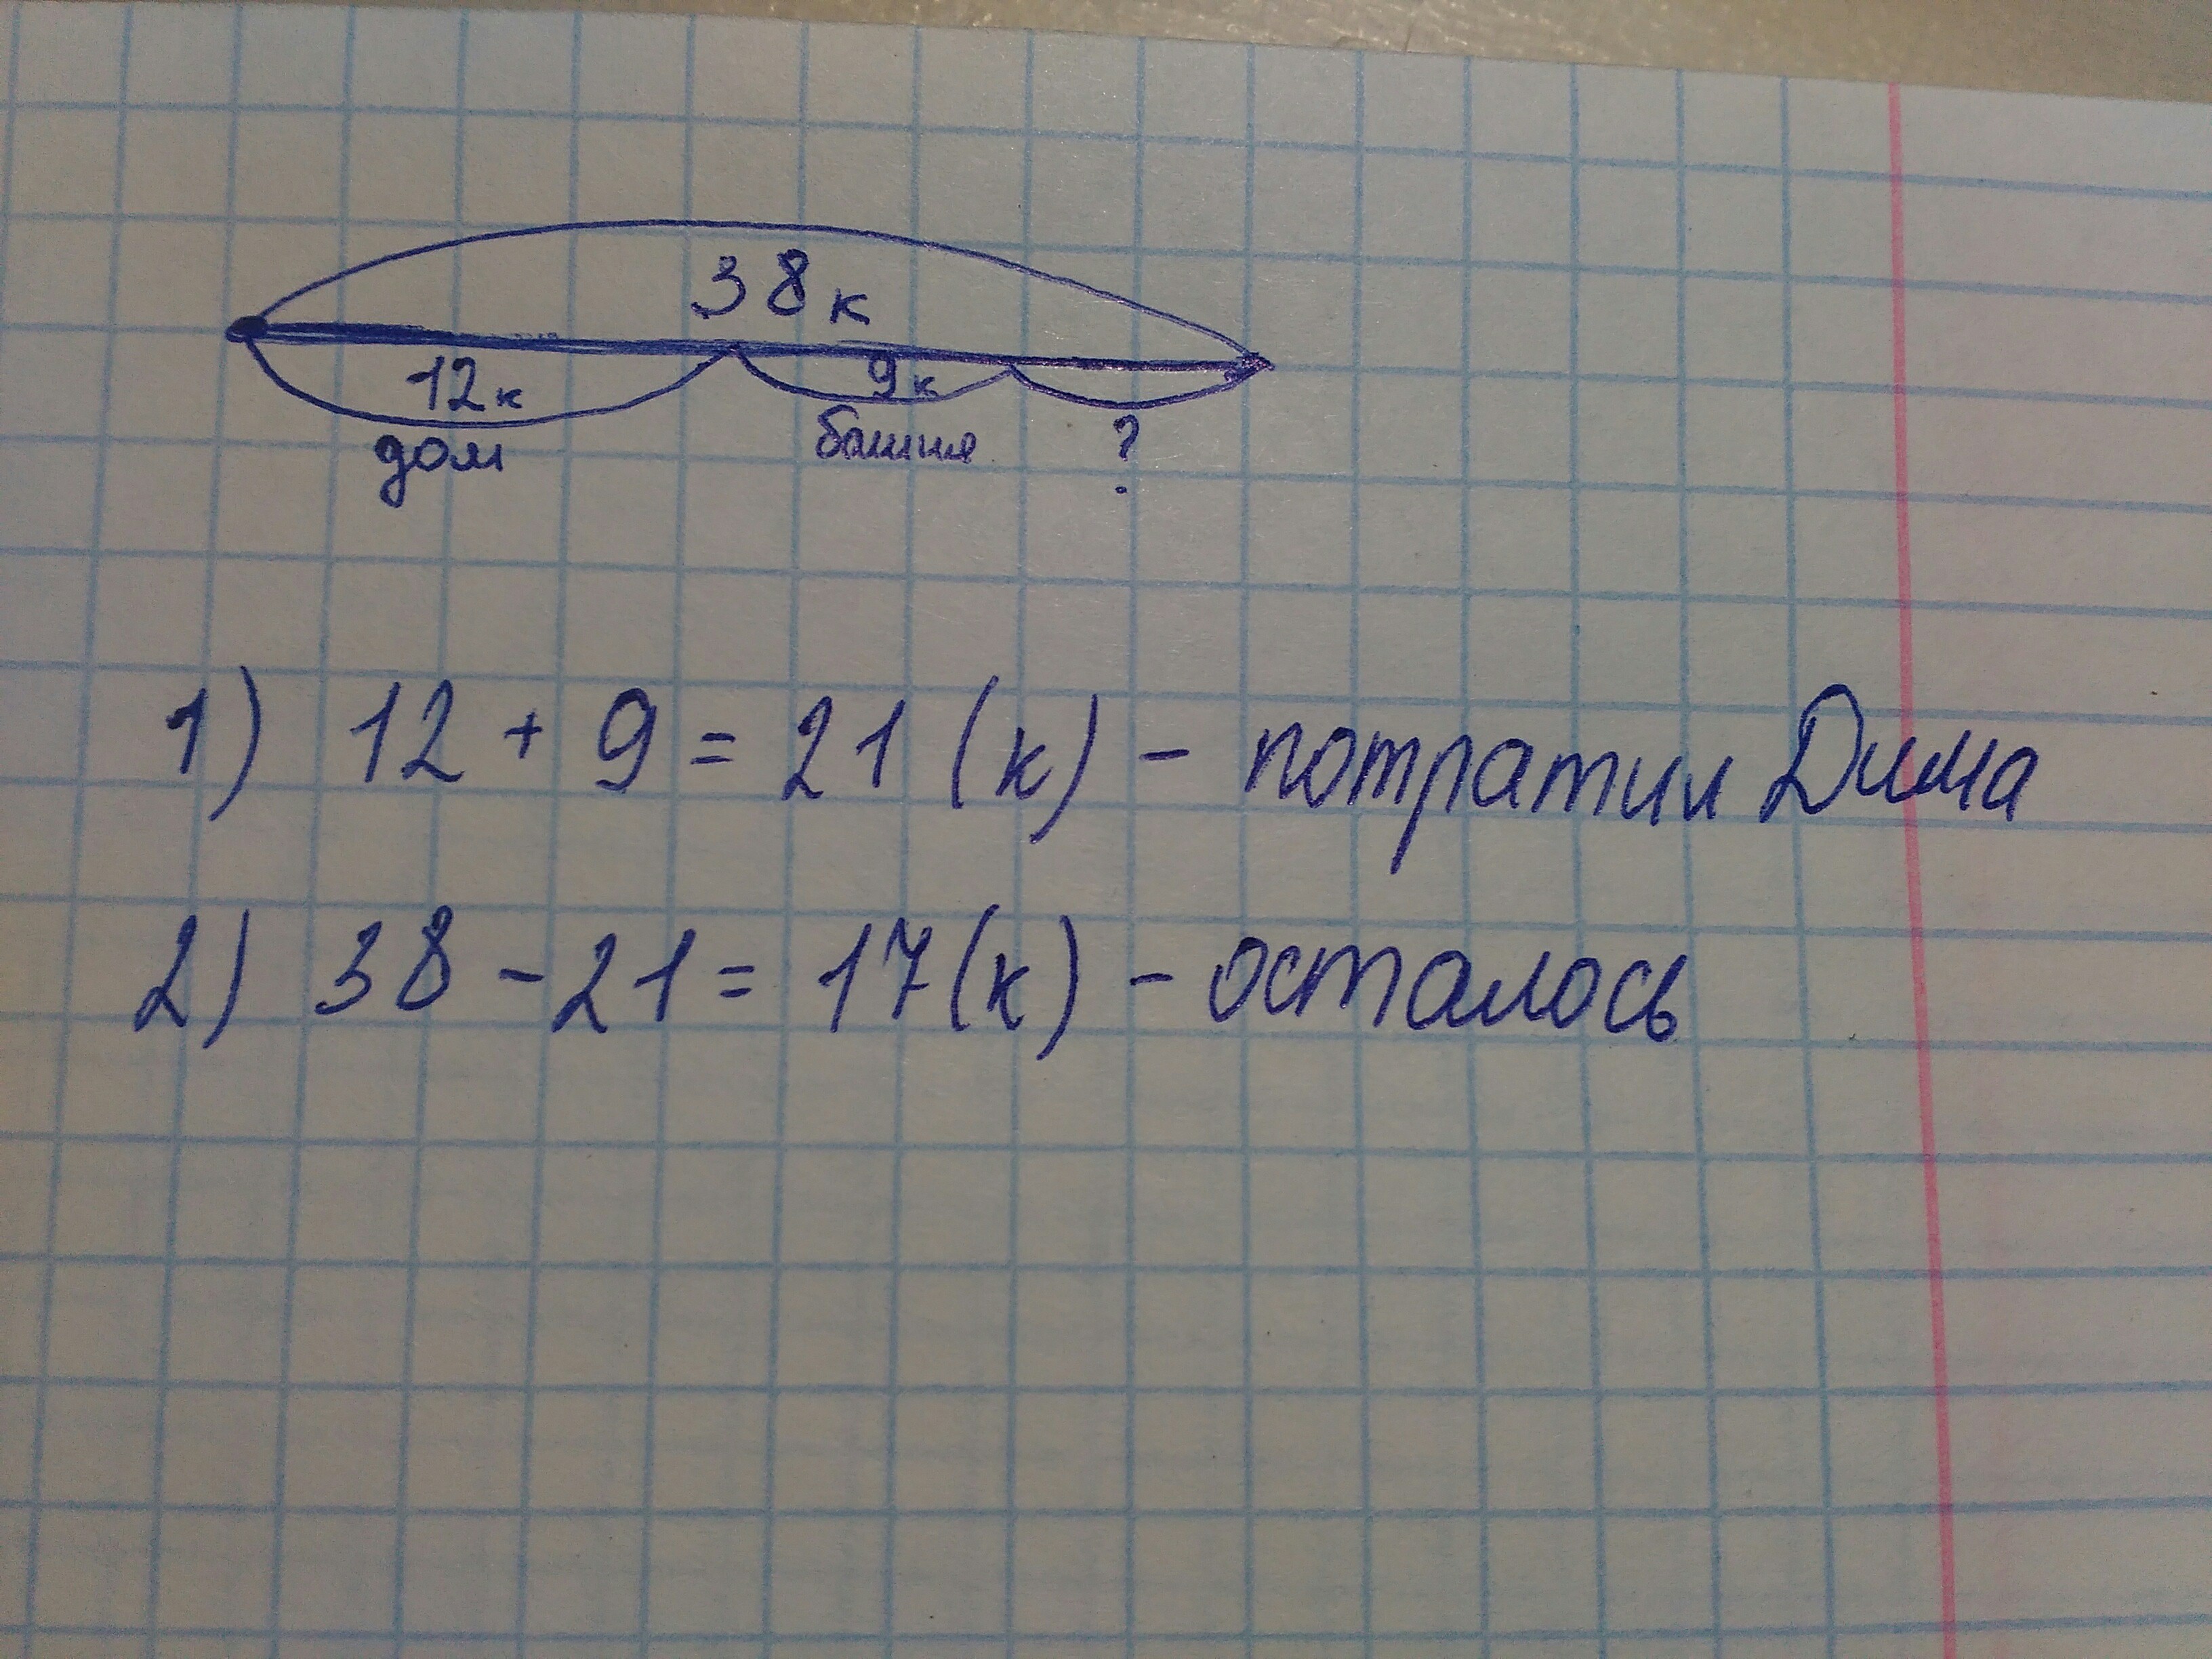 38к
12к 9к
дом башня ?
1) 12 + 9 = 21 (к) - потратил Дима
2) 38 - 21 = 17(к) - осталось